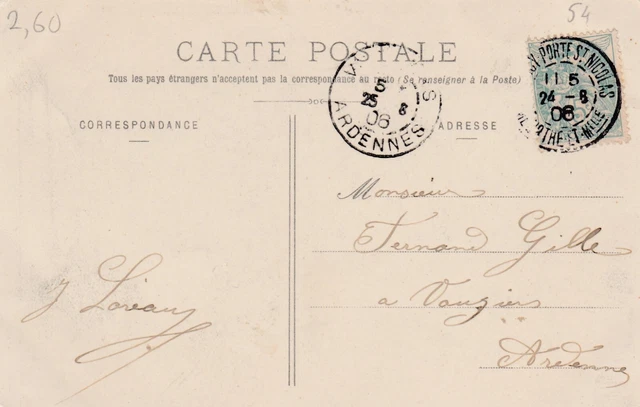 2,60
54
CARTE POSTALE
Tous les pays étrangers n'acceptent pas la correspondance au recto (Se renseigner à la Poste)
CORRESPONDANCE
ADRESSE
5
25 8
06
ARDENNES
PORTE ST NICOLAS
11 5
24 - 8
06
Monsieur
Fernand Gille
a Vouziers
Ardennes
J